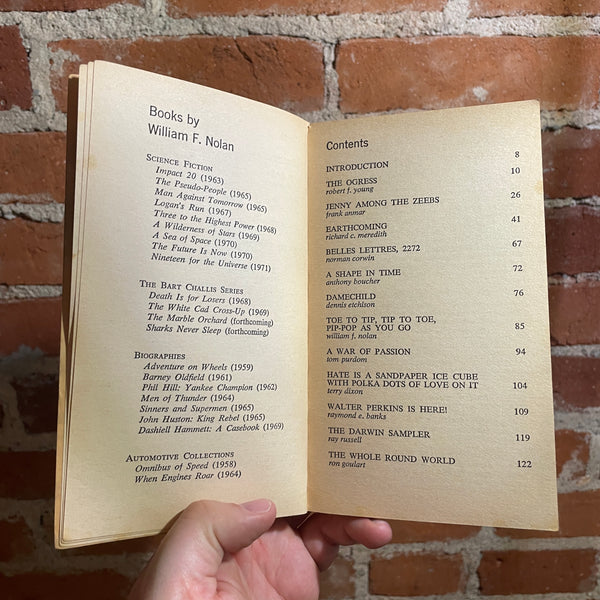 Books by
William F. Nolan
SCIENCE FICTION
Impact 20 (1963)
The Pseudo-People (1965)
Man Against Tomorrow (1965)
Logan's Run (1967)
Three to the Highest Power (1968)
A Wilderness of Stars (1969)
A Sea of Space (1970)
The Future Is Now (1970)
Nineteen for the Universe (1971)
THE BART CHALLIS SERIES
Death Is for Losers (1968)
The White Cad Cross-Up (1969)
The Marble Orchard (forthcoming)
Sharks Never Sleep (forthcoming)
BIOGRAPHIES
Adventure on Wheels (1959)
Barney Oldfield (1961)
Phil Hill: Yankee Champion (1962)
Men of Thunder (1964)
Sinners and Supermen (1965)
John Huston: King Rebel (1965)
Dashiell Hammett: A Casebook (1969)
AUTOMOTIVE COLLECTIONS
Omnibus of Speed (1958)
When Engines Roar (1964)
Contents
INTRODUCTION 8
THE OGRESS 10
robert f. young
JENNY AMONG THE ZEEBS 26
frank anmar
EARTHCOMING 41
richard c. meredith
BELLES LETTRES, 2272 67
norman corwin
A SHAPE IN TIME 72
anthony boucher
DAMECHILD 76
dennis etchison
TOE TO TIP, TIP TO TOE,
PIP-POP AS YOU GO 85
william f. nolan
A WAR OF PASSION 94
tom purdom
HATE IS A SANDPAPER ICE CUBE
WITH POLKA DOTS OF LOVE ON IT 104
terry dixon
WALTER PERKINS IS HERE! 109
raymond e. banks
THE DARWIN SAMPLER 119
ray russell
THE WHOLE ROUND WORLD 122
ron goulart